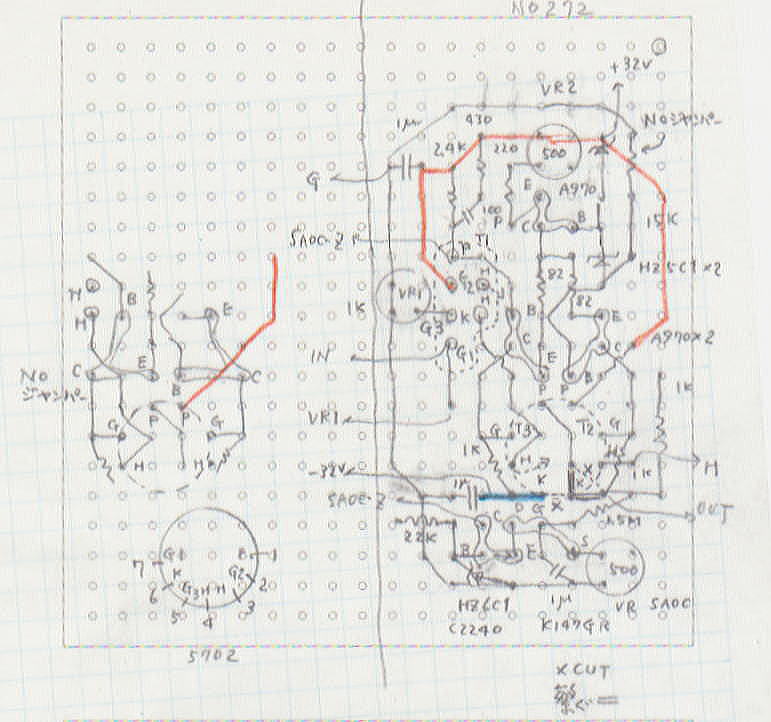 NO272
+32V
VR2
1μ
430
NOジャンパー
2.4K
220
500
G
E
A970
100
P
C
B
15K
SAOC-Z
P
T1
H
HZ5C1×2
G2
H
82
1K
VR1
82
H
B
E
H
G3
K
B
E
IN
G1
C
C
A970×2
C
E
B
C
E
P
P
B
1K
NO
ジャンパー
P
P
VR1
G
G
G
T3
T2
G
H
H
1K
H
H
K
K
1K
H
-32V
1μ
SAOC-Z
C
D
G
X
OUT
1.5M
22K
B
E
S
500
7
G1
B
1
K
G2
2
6
G3
H
H
3
5
4
HZ6C1
1μ
VR
SAOC
C2240
K147GR
5702
X CUT
繋ぐ =